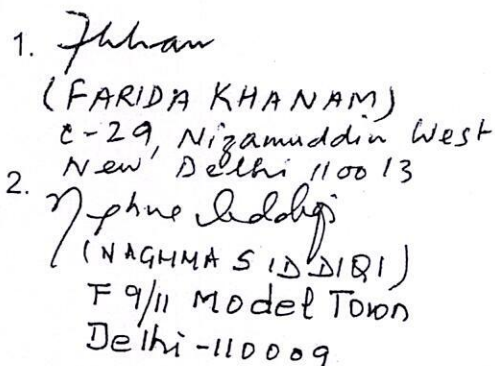 1. FKhan
(FARIDA KHANAM)
C-29, Nizamuddin West
New Delhi 110013
2.
(NAGHMA SIDDIQI)
F 9/11 Model Town
Delhi-110009